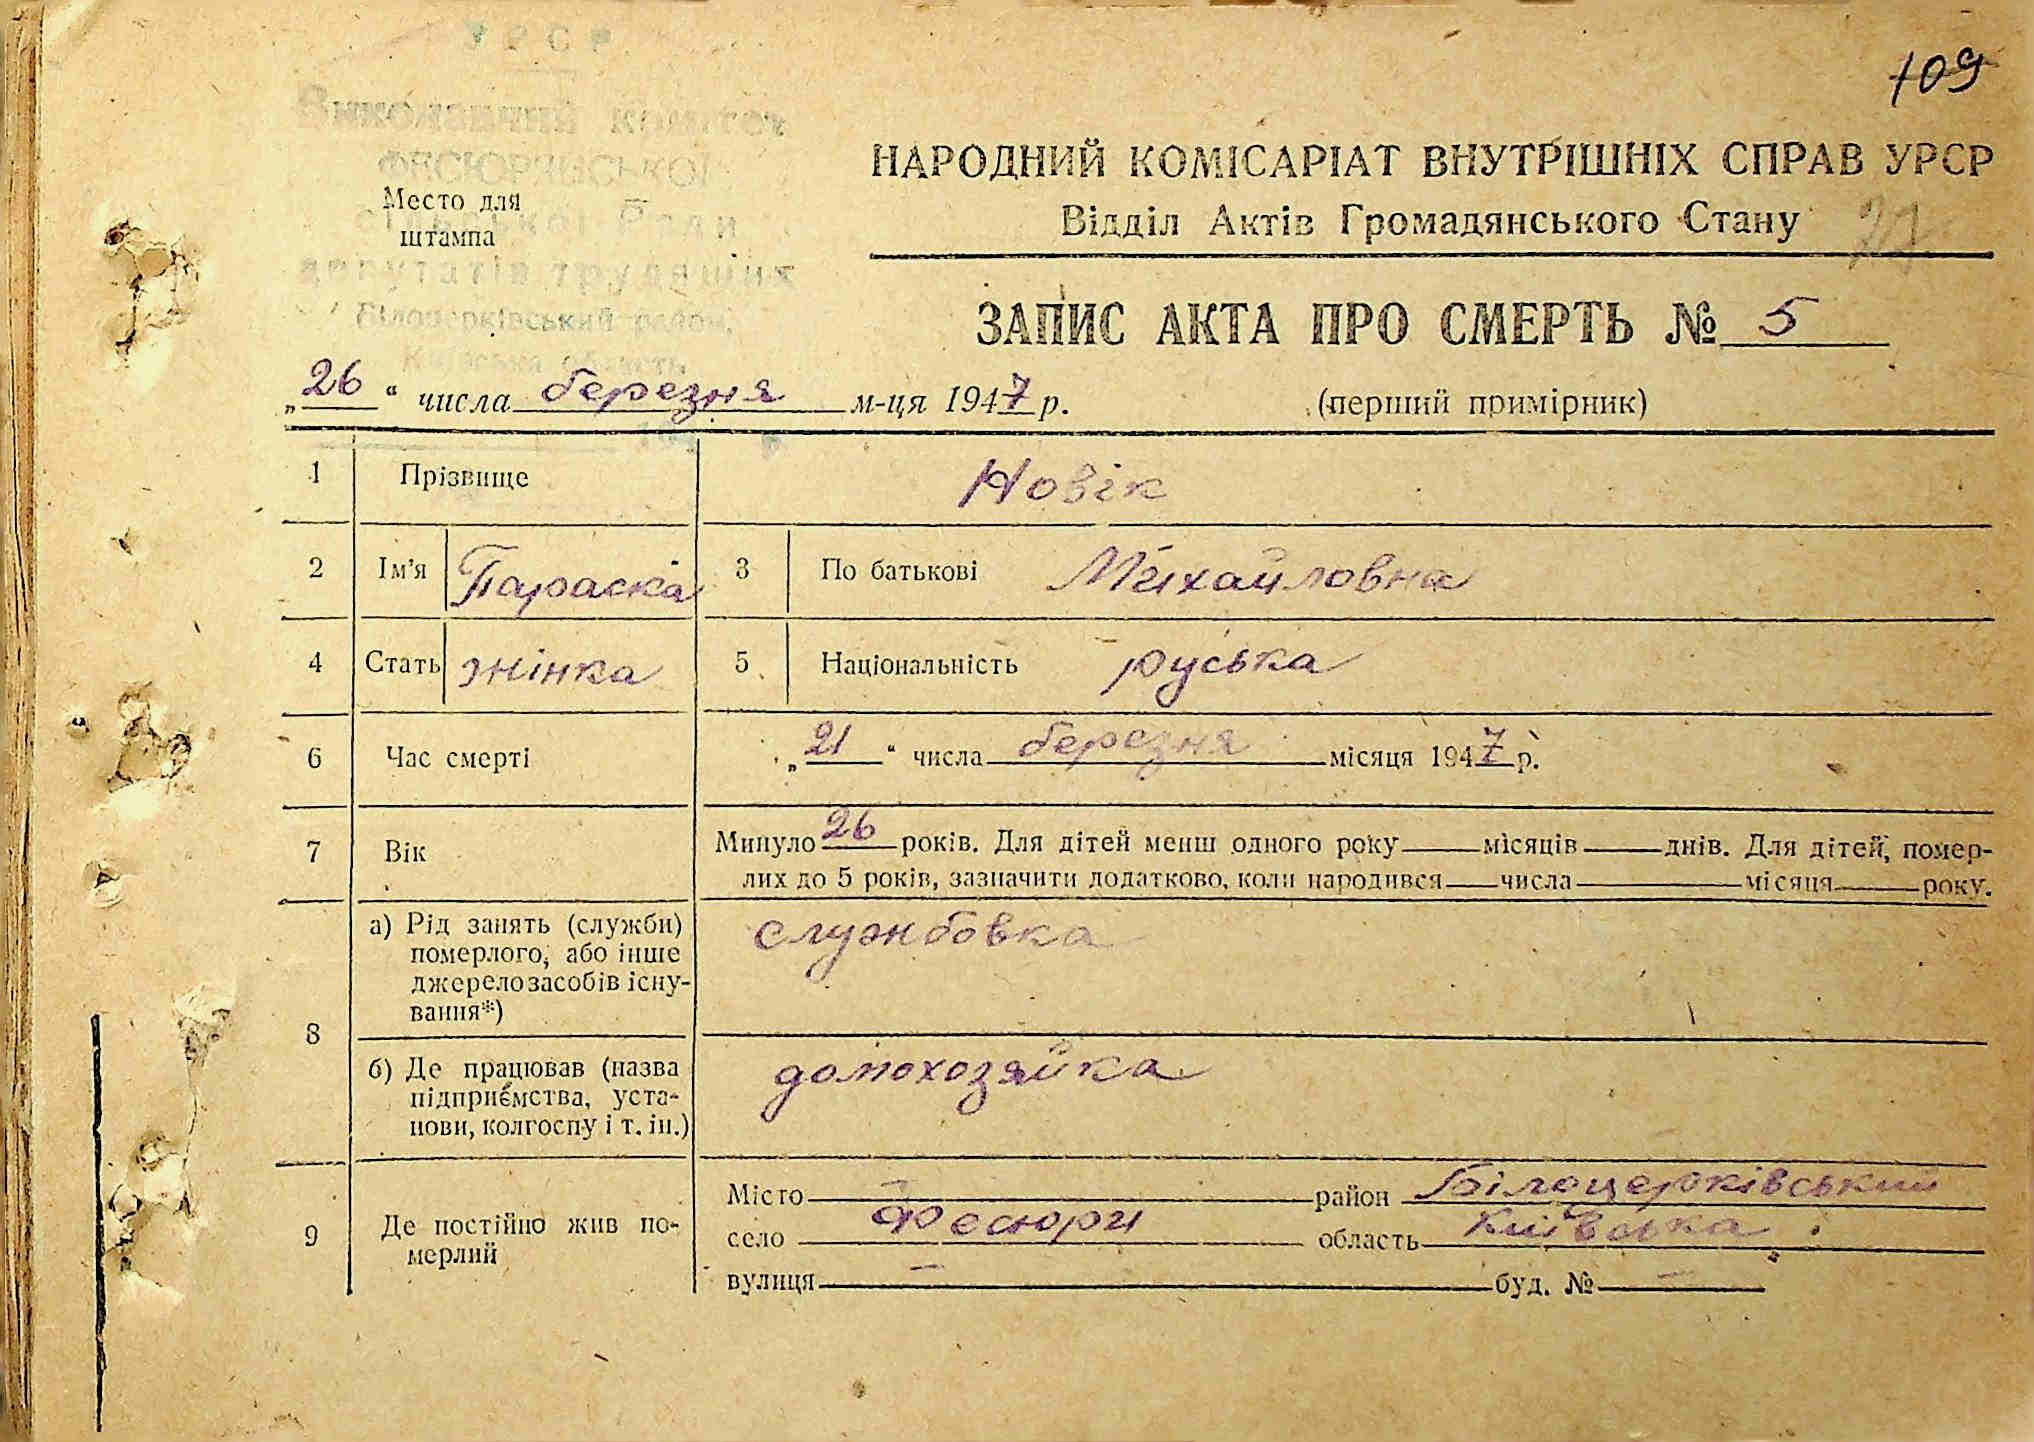 УРСР
109
Виконавчий комітет
ФЕСЮРІВСЬКОЇ
сільської Ради
депутатів трудящих
Білоцерківський район,
Київська область
Место для
штампа
НАРОДНИЙ КОМІСАРІАТ ВНУТРІШНІХ СПРАВ УРСР
Відділ Актів Громадянського Стану
ЗАПИС АКТА ПРО СМЕРТЬ № 5
„26“ числа березня м-ця 1947 р. (перший примірник)
1 Прізвище Новік
2 Ім'я Параска 3 По батькові Михайловна
4 Стать жнінка 5 Національність руська
6 Час смерті „21“ числа березня місяця 1947 р.
7 Вік Минуло 26 років. Для дітей менш одного року місяців днів. Для дітей, помер-
лих до 5 років, зазначити додатково, коли народився числа місяця року.
8 а) Рід занять (служби) службовка
померлого, або інше
джерело засобів існу-
вання*)
б) Де працював (назва домохозяйка
підприємства, уста-
нови, колгоспу і т. ін.)
9 Де постійно жив по-
мерлий
Місто — район Білоцерківський
село Фесюри область Київська
вулиця — буд. № —